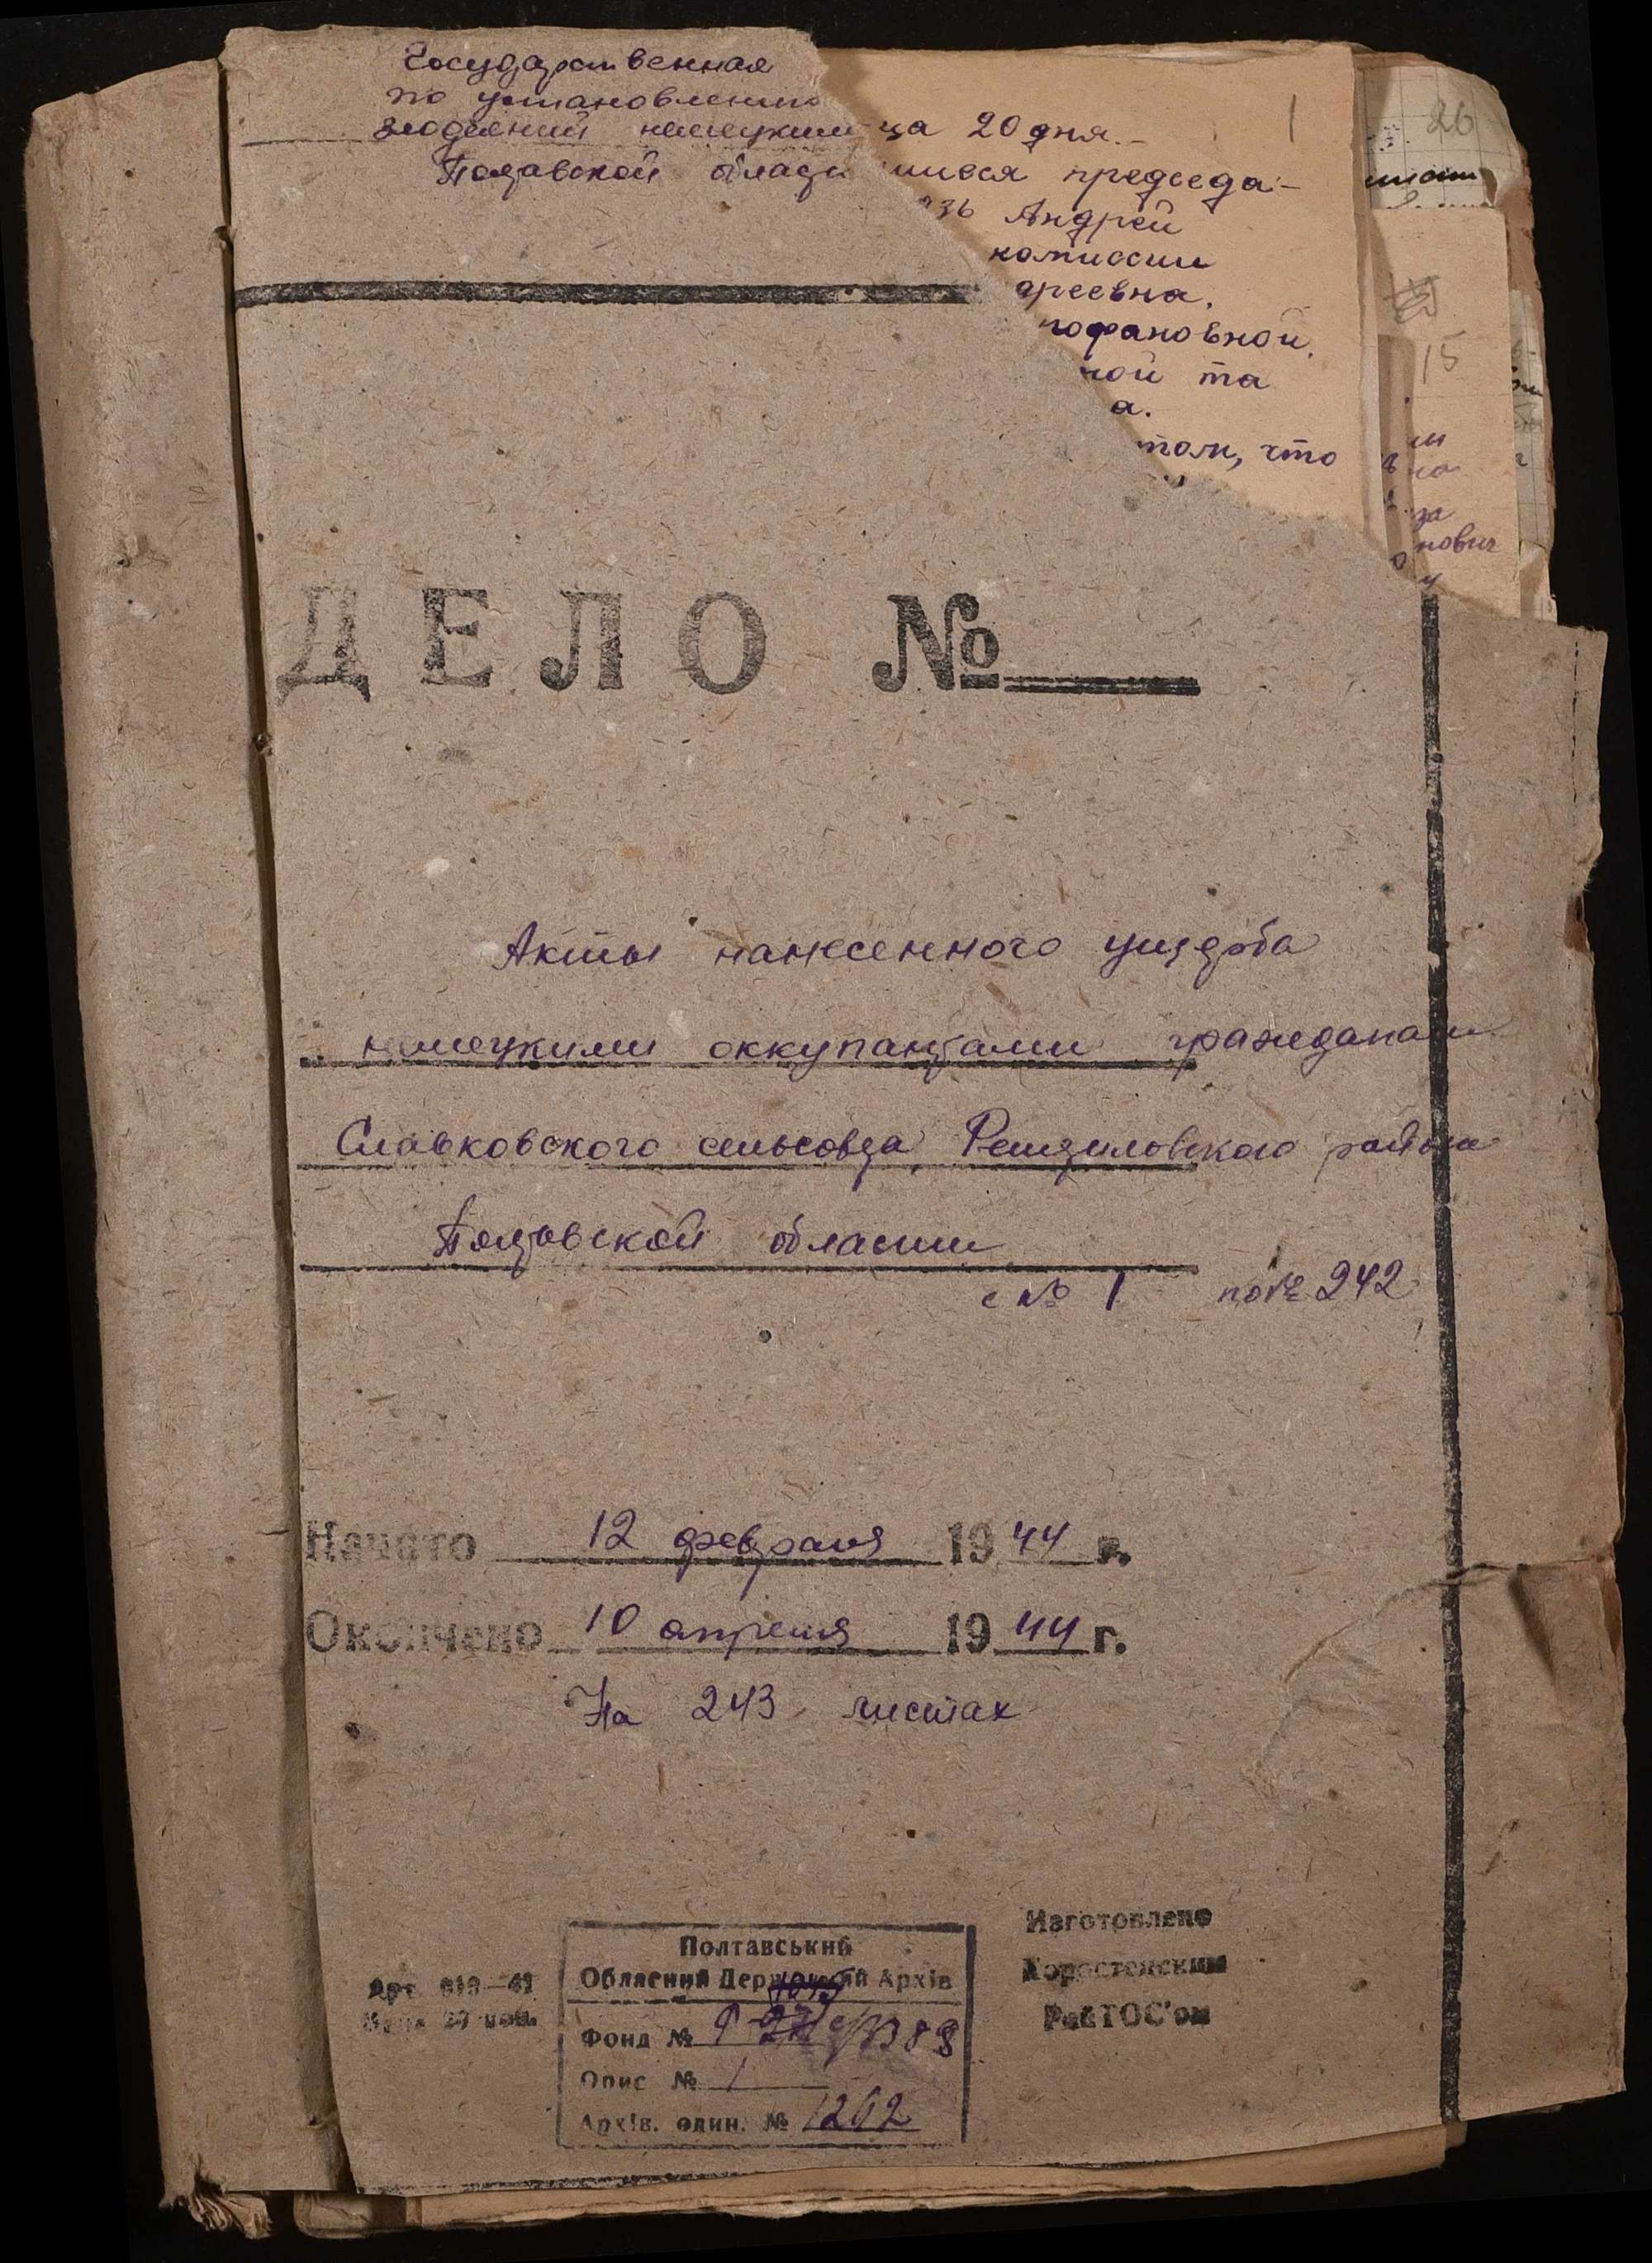 Государственная
по установлению
злодеяний немецких
Полтавской област
ца 20 дня.
1
шися председа-
язь Андрей
комиссии
дреевна,
рофановной,
ной та
а.
том, что
26
15
на
за
нович
ДЕЛО №
Акты нанесенного ущерба
немецкими оккупантами гражданам
Славковского сельсовета, Решетиловского района
Полтавской области
с № 1 по № 242
Начато 12 февраля 1944 г.
Окончено 10 апреля 1944 г.
На 243 листах
Полтавський
Обласний Державний Архів
Фонд № Р 3388
Опис № 1
Архів. один. № 1262
Изготовлено
Коростенским
РайТОС'ом